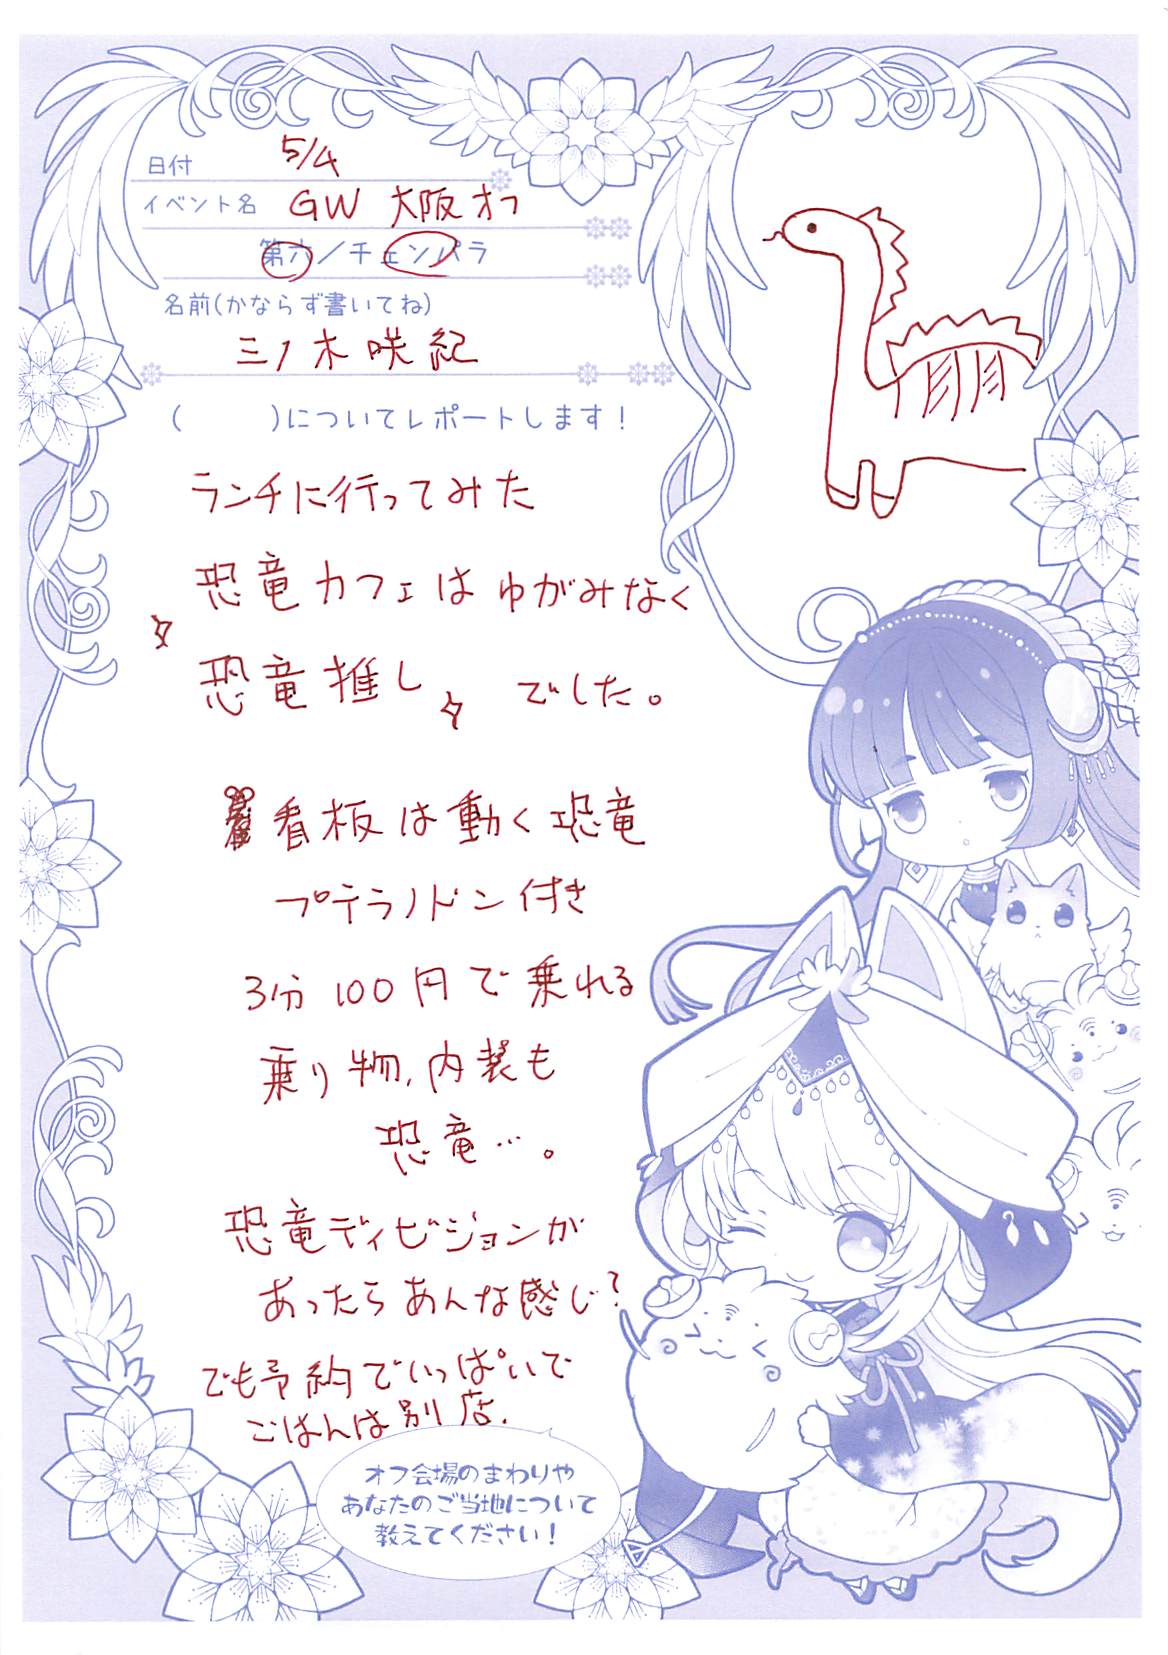 日付 5/4
イベント名 GW 大阪オフ
第六/チェンパラ
名前(かならず書いてね)
三ノ木咲紀
(　　)についてレポートします！
ランチに行ってみた
恐竜カフェはゆがみなく
恐竜推し でした。
看板は動く恐竜
プテラノドン付き
3分100円で乗れる
乗り物、内装も
恐竜…。
恐竜ディビジョンが
あったらあんな感じ？
でも予約でいっぱいで
ごはんは別店.
オフ会場のまわりや
あなたのご当地について
教えてください！